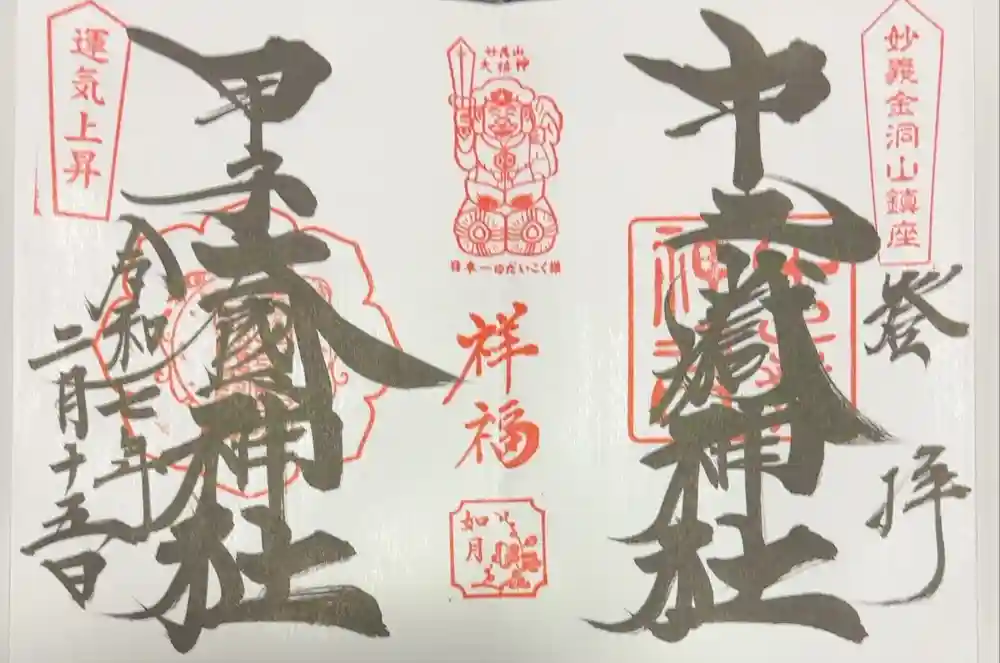 妙義金洞山鎮座
登拝
中之嶽神社
妙義山
大福神
日本一のだいこく様
祥福
如月
甲子大國神社
運気上昇
令和七年
二月十五日